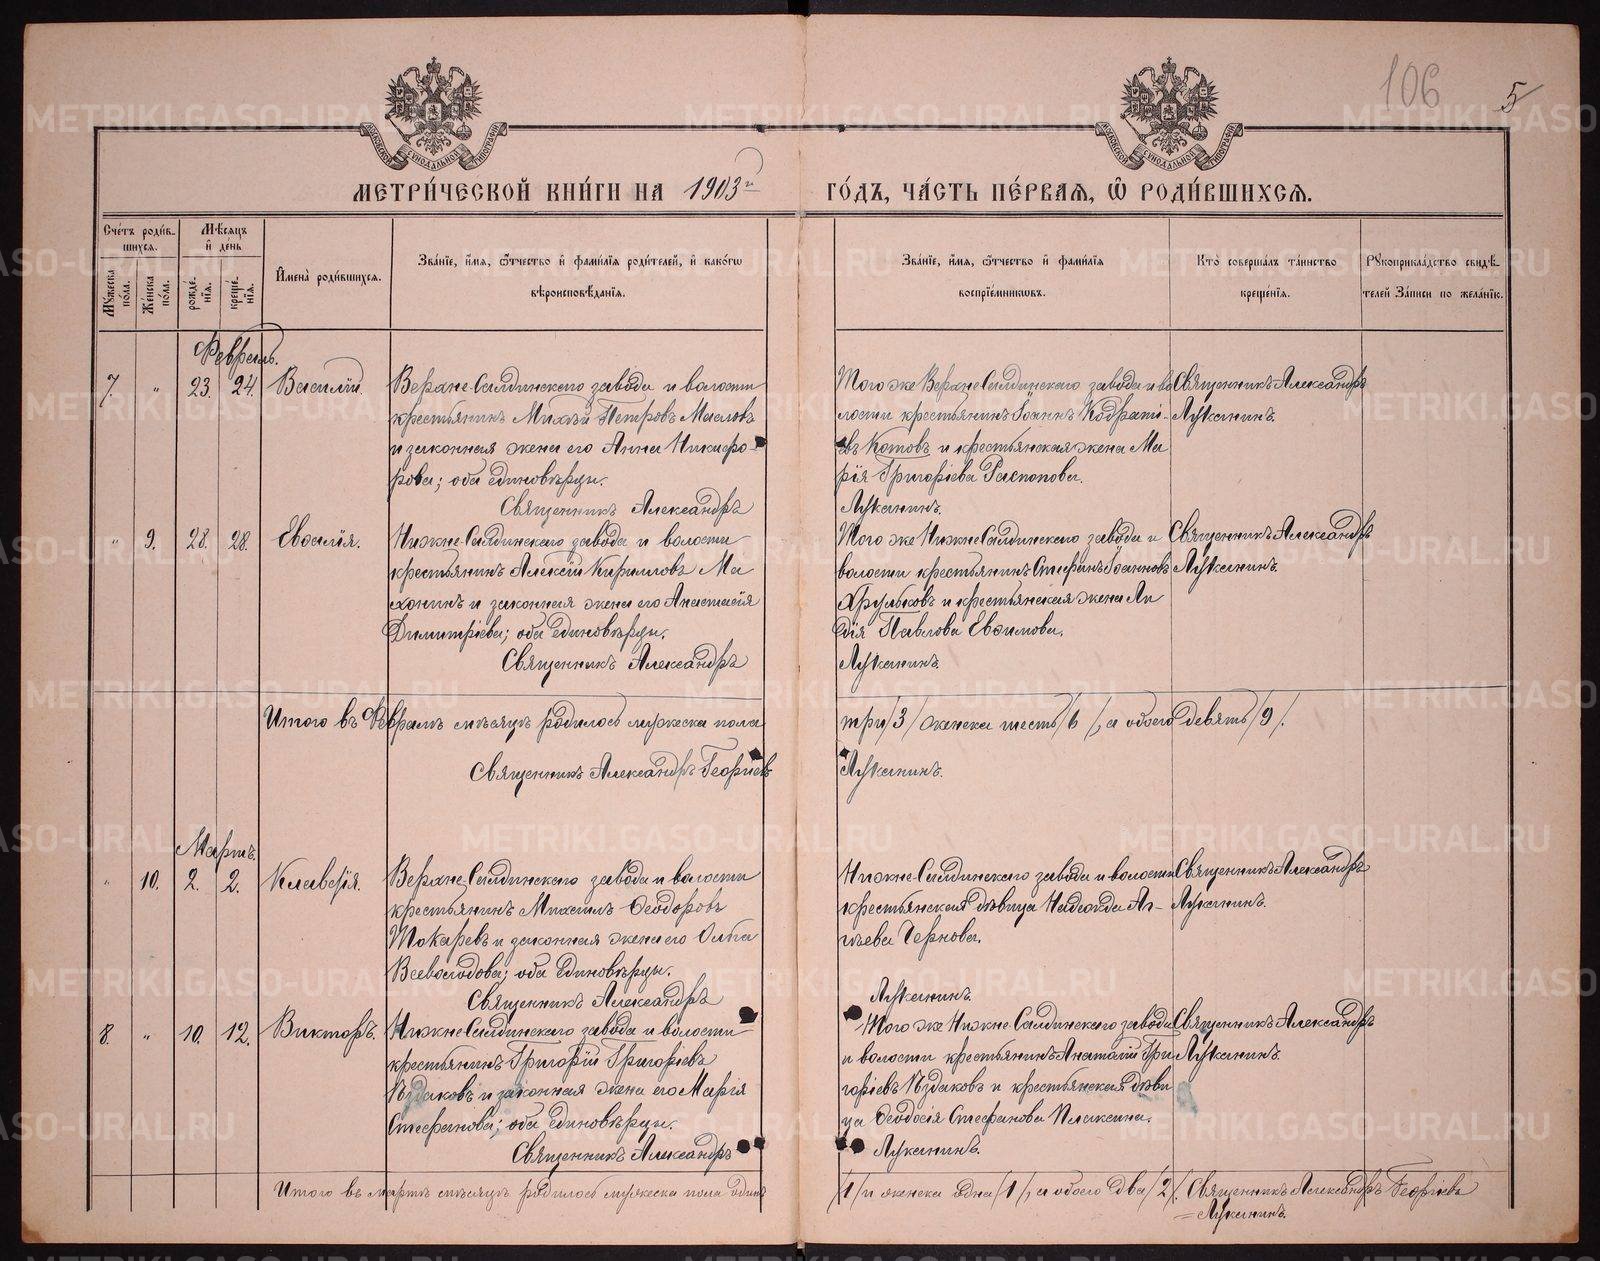 106
5
МЕТРИ́ЧЕСКОЙ КНИ́ГИ НА 1903й ГО́ДЪ, ЧА́СТЬ ПЕ́РВАЯ, Ѡ РОДИ́ВШИХСЯ.
Сче́тъ роди́в-
шихся.
Му́жеска по́ла.
Же́нска по́ла.
Мѣ́сяцъ и де́нь
рожде́-
нія.
креще́-
нія.
И́мена роди́вшихся.
Зва́ніе, и́мя, ѻ́тчество и фами́лія роди́телей, и како́гѡ
вѣроисповѣ́данія.
Зва́ніе, и́мя, ѻ́тчество и фами́лія
воспріе́мниковъ.
Кто̀ соверша́лъ та́инство
креще́нія.
Рукоприкла́дство свидѣ́-
телей За́писи по жела́нію.
Февраль.
7. " 23. 24. Василій.
Верхне-Салдинскаго завода и волости
крестьянинъ Михѣй Петровъ Масловъ
и законная жена его Анна Никифо-
рова; оба единовѣрцы.
Священникъ Александръ
Того же Верхне-Салдинскаго завода и во
лости крестьянинъ Іоаннъ Кодрати-
евъ Котовъ и крестьянская жена Ма
рія Григоріева Распопова.
Лукинъ.
Священникъ Александръ
Лукинъ.
" 9. 28. 28. Евѳалія.
Нижне-Салдинскаго завода и волости
крестьянинъ Алексій Кирилловъ Ма
хонинъ и законная жена его Анастасія
Димитріева; оба единовѣрцы.
Священникъ Александръ
Того же Нижне-Салдинскаго завода и
волости крестьянинъ Стефанъ Іоанновъ
Хрульковъ и крестьянская жена Ли
дія Павлова Евѳимова.
Священникъ Александръ
Итого въ Февралѣ мѣсяцѣ родилось мужеска пола
три /3/ женска шесть /6/, а обоего девять /9/.
Священникъ Александръ Георгіевъ
Мартъ.
" 10. 2. 2. Клавдія.
Верхне-Салдинскаго завода и волости
крестьянинъ Михаилъ Ѳеодоровъ
Токаревъ и законная жена его Ольга
Всеволодова; оба единовѣрцы.
Священникъ Александръ
Нижне-Салдинскаго завода и волости
крестьянская дѣвица Надежда Аг-
гѣева Чернова.
Священникъ Александръ
8. " 10. 12. Викторъ.
Нижне-Салдинскаго завода и волости
крестьянинъ Григорій Григоріевъ
Ѣздаковъ и законная жена его Марія
Стефанова; оба единовѣрцы.
Священникъ Александръ
Того же Нижне-Салдинскаго завода
и волости крестьянинъ Анатолій Гри
горіевъ Ѣздаковъ и крестьянская дѣви
ца Ѳеодосія Стефанова Плаксина.
Священникъ Александръ
Итого въ мартѣ мѣсяцѣ родилось мужеска пола одинъ
/1/ и женска одна /1/, а обоего два /2/. Священникъ Александръ Георгіевъ
METRIKI.GASO-URAL.RU